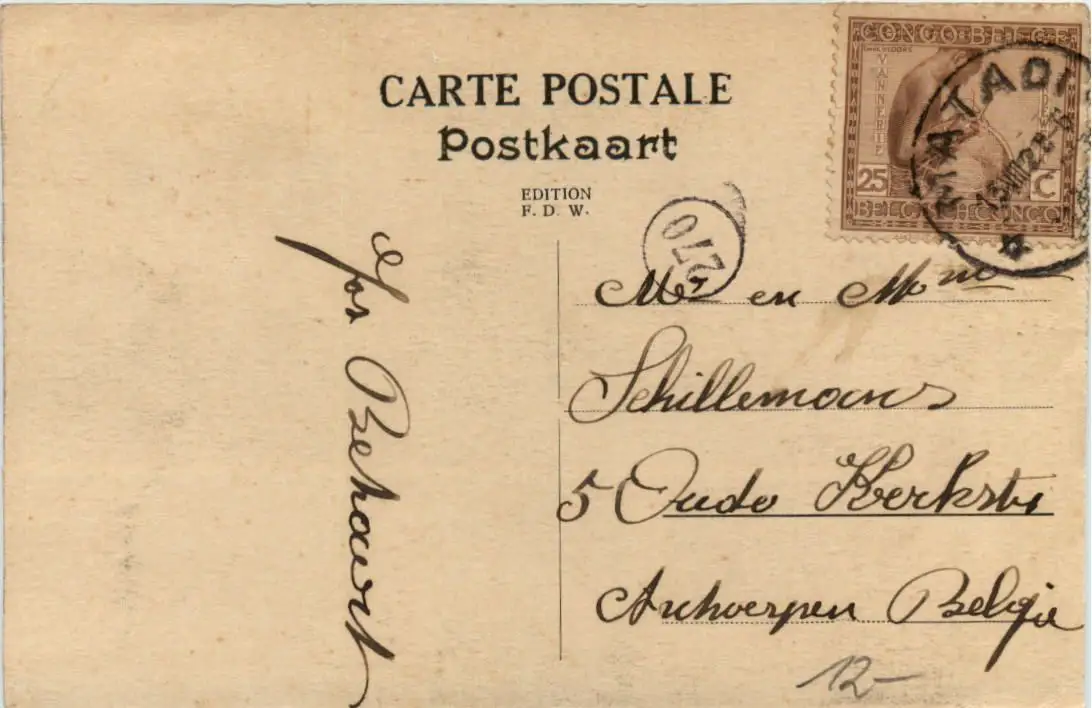 CARTE POSTALE
Postkaart
EDITION
F. D. W.
CONGO BELGE
VANNERIE
25 C
BELGISCH CONGO
MATADI
270
Mr en Mme
Schillemans
5 Oude Kerkstr
Antwerpen Belgie
Jos Behaert
12-